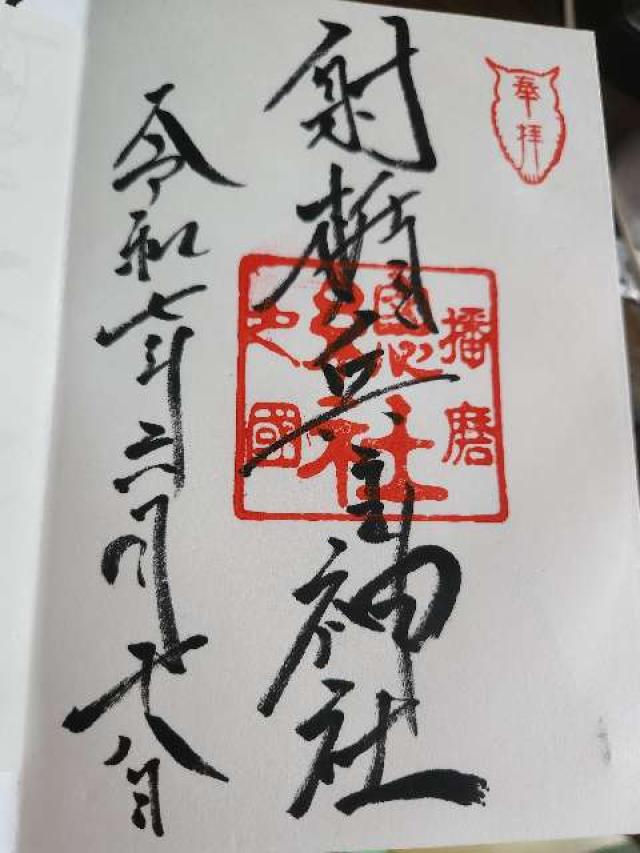 奉拝
射楯兵主神社
播磨
總社
之國
令和七年六月十八日